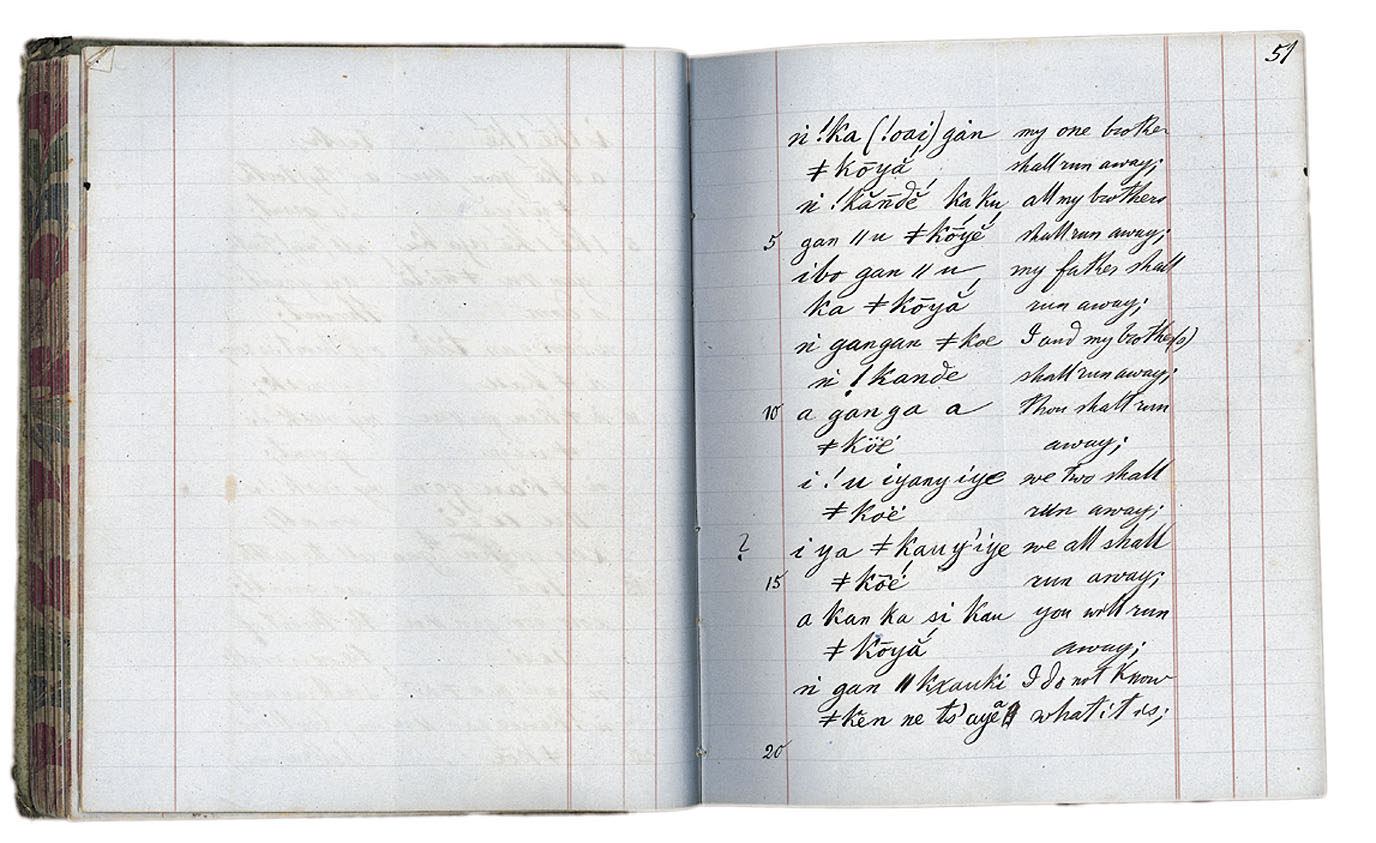 51
n !ka (!oai) gan my one brother
ǂkōyắ shall run away;
n !kăn̄dĕ́ kaku all my brothers
5 gan ǁu ǂkōyĕ́ shall run away;
ibo gan ǁu my father shall
ka ǂkōyắ run away;
n gangan ǂkoe I and my brother(s)
n !kande shall run away;
10 a ganga a thou shalt run
ǂköé away;
i !u iyany iye we two shall
ǂkoé run away;
? i ya ǂkauy'iye we all shall
15 ǂkōé run away;
a kan ka si kau you will run
ǂkōyắ away;
n gan ǁkxauki I do not know
ǂkĕn ne ts'ayĕa what it is;
20